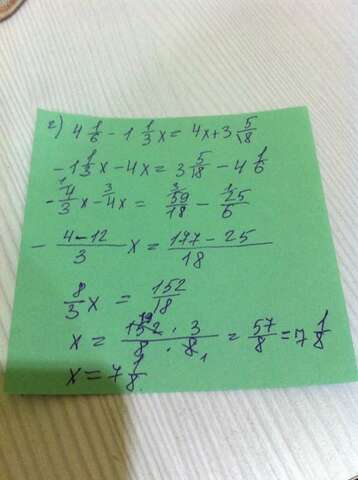 г) 4 1/6 - 1 1/3 x = 4x + 3 5/18
- 1 1/3 x - 4x = 3 5/18 - 4 1/6
- 4/3 x - 4x = 59/18 - 25/6
- (4 - 12)/3 x = (177 - 25)/18
8/3 x = 152/18
x = (152 · 3)/(8 · 8) = 57/8 = 7 1/8
x = 7 1/8